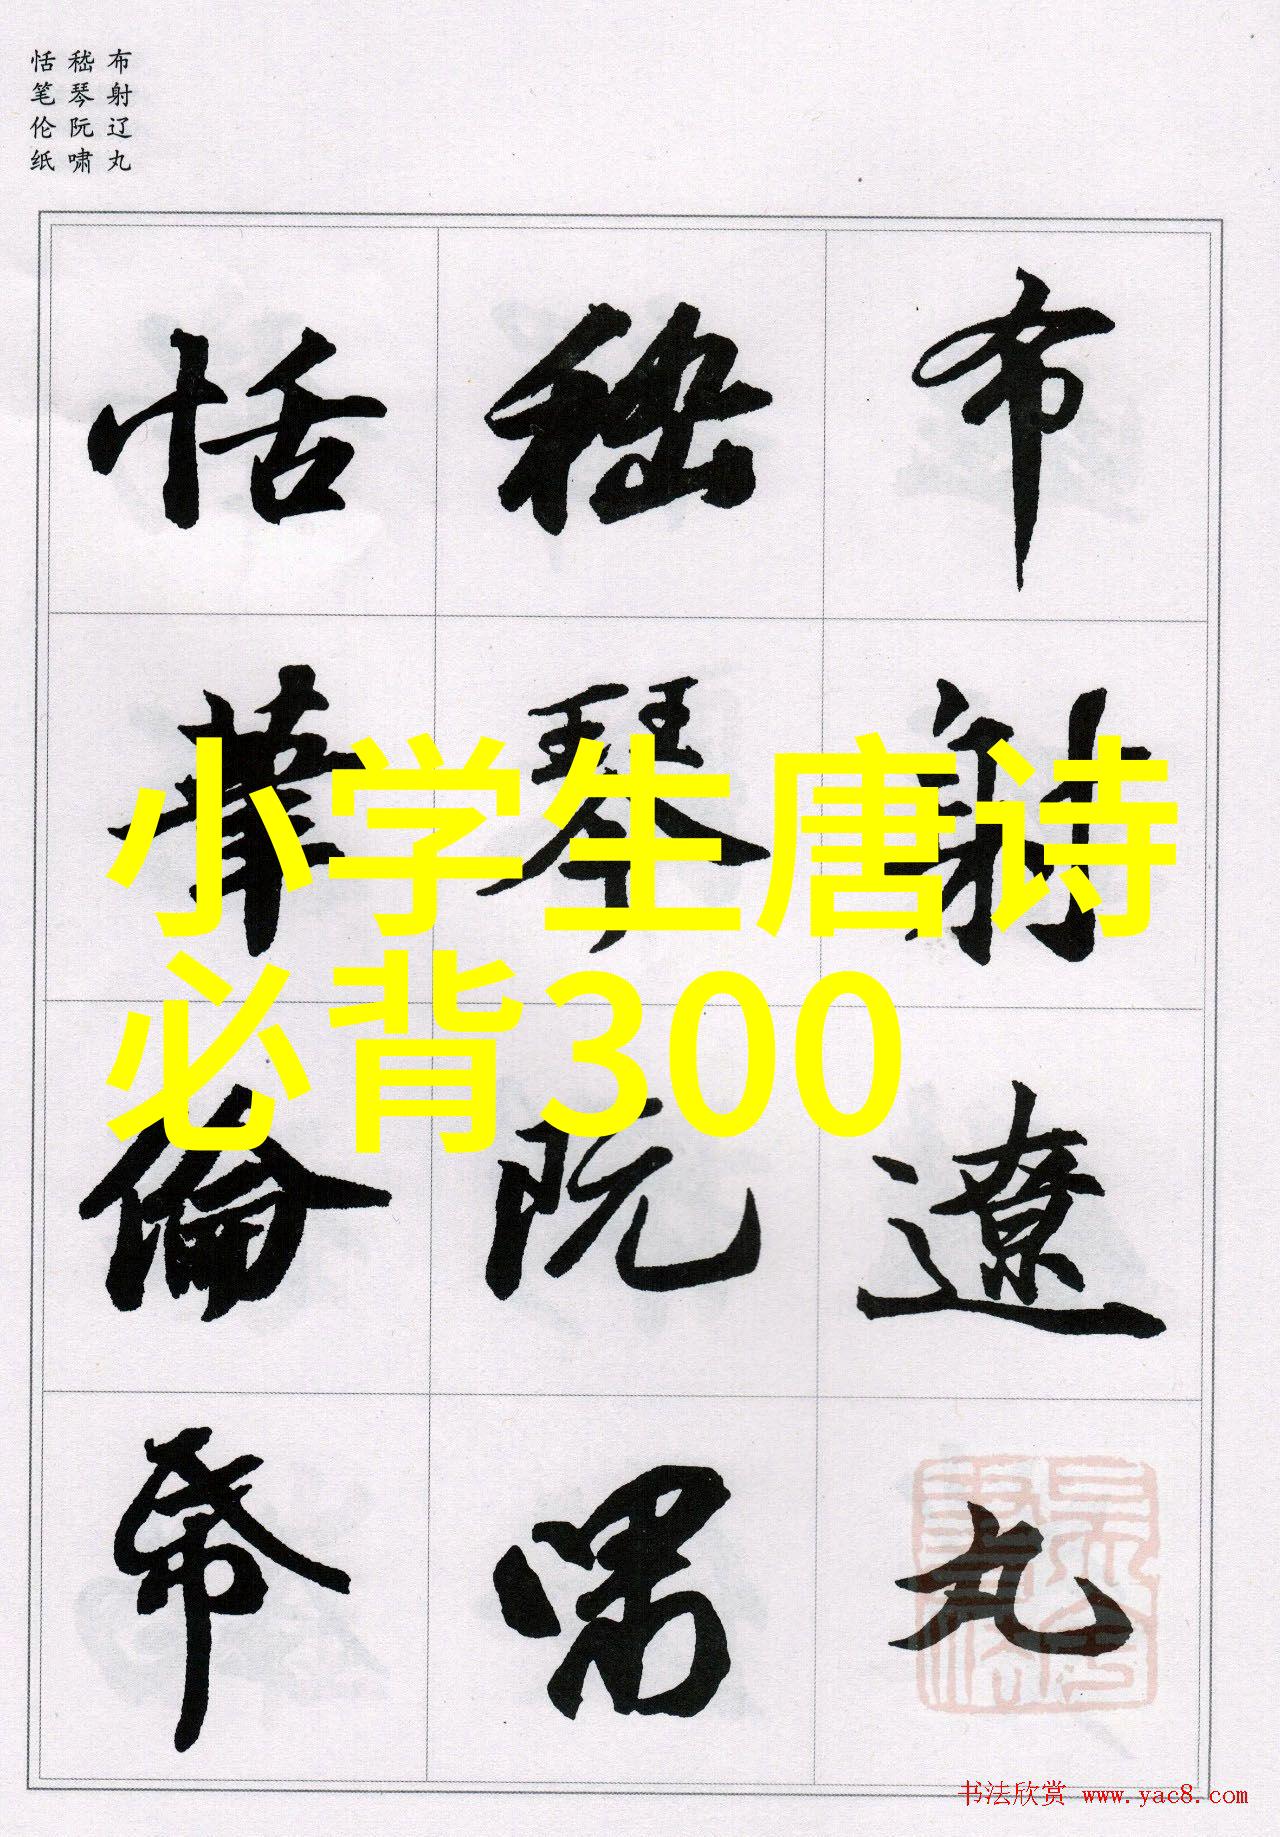 布射辽丸
嵇琴阮啸
恬笔伦纸
布射遼丸
嵇琴阮嘯
恬筆倫帋
小学生唐诗
必背300
书法欣赏 www.yac8.com